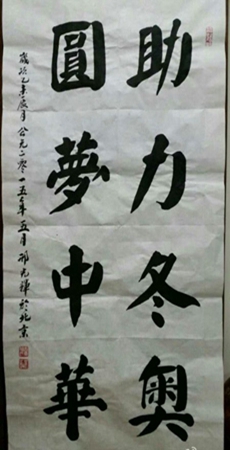 助力冬奥
圓夢中華
歲次乙未夏月 公元二零一五年五月 邢光輝於北京